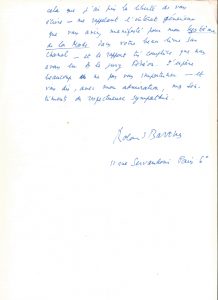 cela que j'ai pris la liberté de vous
écrire - me rappelant l'intérêt généreux
que vous avez manifesté pour mon Système
de la Mode dans votre beau livre sur
Chanel - et le rapport de complicité que nous
avons eu à la jury Fénéon. J'espère
beaucoup de ne pas vous importuner - et
vous dis, avec mon admiration, mes sen-
timents de respectueuse sympathie.
Roland Barthes
11 rue Servandoni Paris 6e